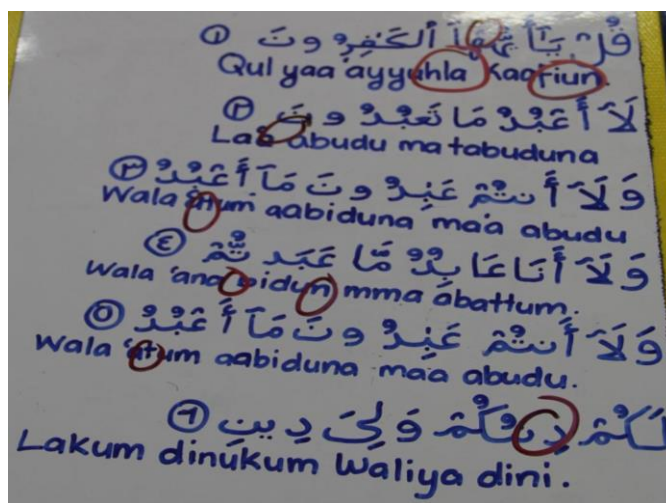 قُلْ يَـٰٓأَيُّهَا ٱلْكَـٰفِرُونَ ١
Qul yaa ayyuhla Kaafiun.
لَآ أَعْبُدُ مَا تَعْبُدُونَ ٢
Laa abudu ma tabuduna
وَلَآ أَنتُمْ عَـٰبِدُونَ مَآ أَعْبُدُ ٣
Wala atum aabiduna maa abudu
وَلَآ أَنَا۠ عَابِدٌ مَّا عَبَدتُّمْ ٤
Wala 'ana bidun mma abattum.
وَلَآ أَنتُمْ عَـٰبِدُونَ مَآ أَعْبُدُ ٥
Wala 'atum aabiduna maa abudu.
لَكُمْ دِينُكُمْ وَلِىَ دِينِ ٦
Lakum dinukum Waliya dini.